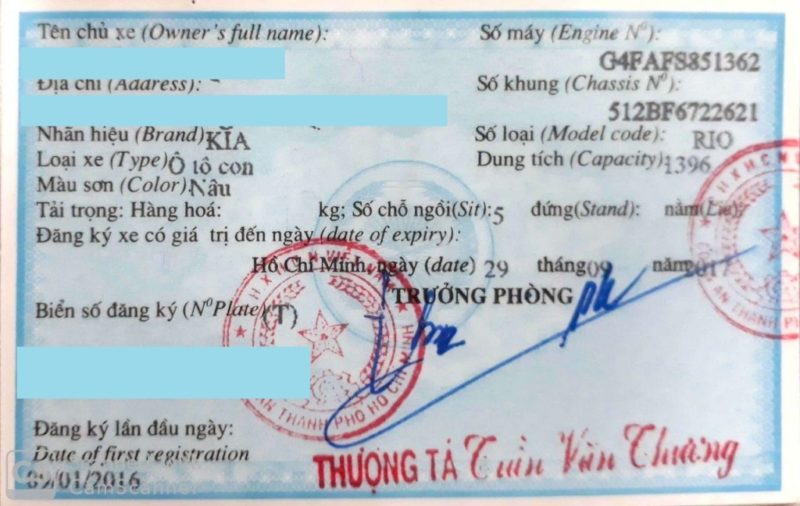 Tên chủ xe (Owner's full name):
Số máy (Engine Nº):
G4FAFS851362
Địa chỉ (Address):
Số khung (Chassis Nº):
512BF6722621
Nhãn hiệu (Brand): KIA
Số loại (Model code): RIO
Loại xe (Type) Ô tô con
Dung tích (Capacity): 1396
Màu sơn (Color) Nâu
Tải trọng: Hàng hoá: kg; Số chỗ ngồi(Sit): 5 đứng(Stand): nằm(Lie):
Đăng ký xe có giá trị đến ngày (date of expiry):
Hồ Chí Minh, ngày (date) 29 tháng 09 năm 2017
TRƯỞNG PHÒNG
Biển số đăng ký (Nº Plate) (T)
AN THÀNH PHỐ HỒ CHÍ MINH
Đăng ký lần đầu ngày:
Date of first registration
09/01/2016
THƯỢNG TÁ Trần Văn Thương
CamScanner